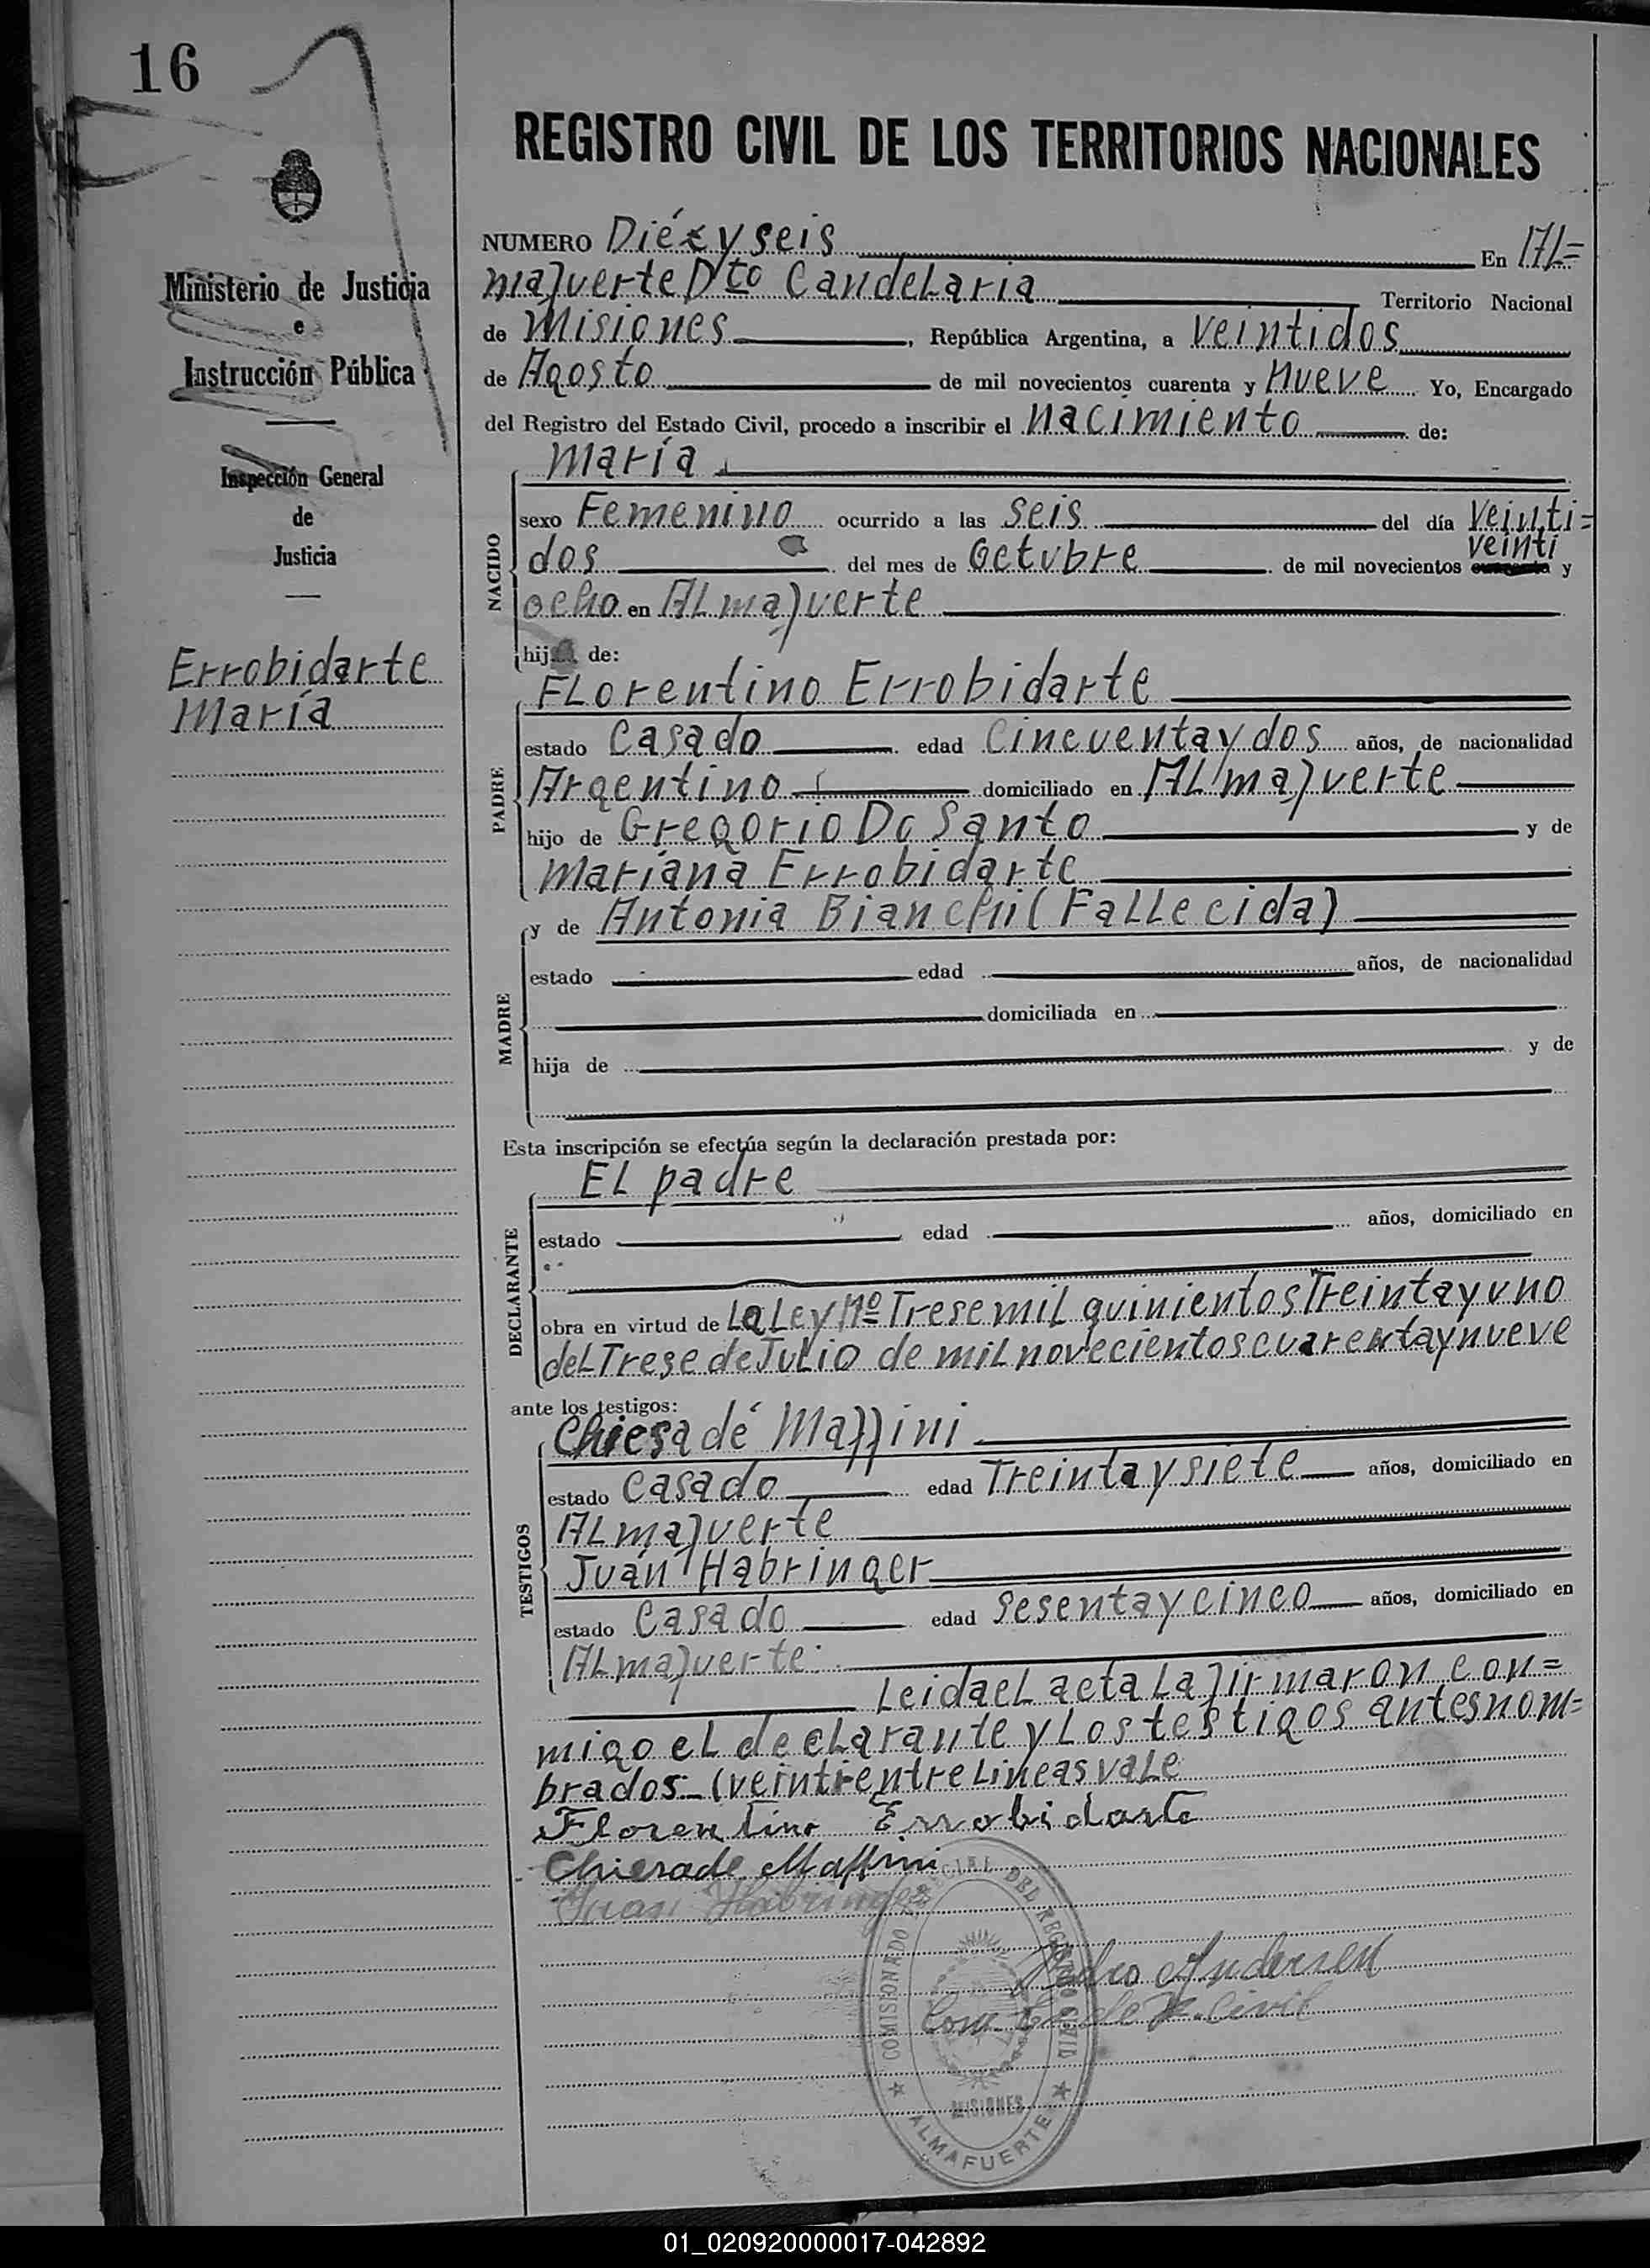 16
REGISTRO CIVIL DE LOS TERRITORIOS NACIONALES
Ministerio de Justicia
e
Instrucción Pública
Inspección General
de
Justicia
Errobidarte
María
NUMERO Diéz y seis En Al=
mafuerte Dto Candelaria Territorio Nacional
de Misiones, República Argentina, a veintidos
de Agosto de mil novecientos cuarenta y Nueve Yo, Encargado
del Registro del Estado Civil, procedo a inscribir el nacimiento de:
NACIDO
María
sexo Femenino ocurrido a las seis del día veinti=
veinti
dos del mes de Octubre de mil novecientos cuarenta y
ocho en Almafuerte
hija de:
PADRE
Florentino Errobidarte
estado Casado edad Cincuenta y dos años, de nacionalidad
Argentino domiciliado en Almafuerte
hijo de Gregorio Do Santo y de
Maríana Errobidarte
MADRE
y de Antonia Bianchi (Fallecida)
estado edad años, de nacionalidad
domiciliada en
hija de y de
Esta inscripción se efectúa según la declaración prestada por:
DECLARANTE
El padre
estado edad años, domiciliado en
obra en virtud de La Ley Nº Trese mil quinientos Treinta y uno
del Trese de Julio de mil novecientos cuarenta y nueve
ante los testigos:
TESTIGOS
Chiesa dé Maffini
estado Casado edad Treinta y siete años, domiciliado en
Almafuerte
Juán Habringer
estado Casado edad Sesenta y cinco años, domiciliado en
Almafuerte.
Leida el acta la firmaron con=
migo el declarante y los testigos antes nom=
brados._ (veinti entre lineas vale
Florentino Errobidarte
Chiesa de Maffini
Juan Habringer
Pedro Andersen
Com de R. Civil
COMISIONADO ESPECIAL DEL REGISTRO CIVIL
MISIONES
ALMAFUERTE
01_020920000017-042892